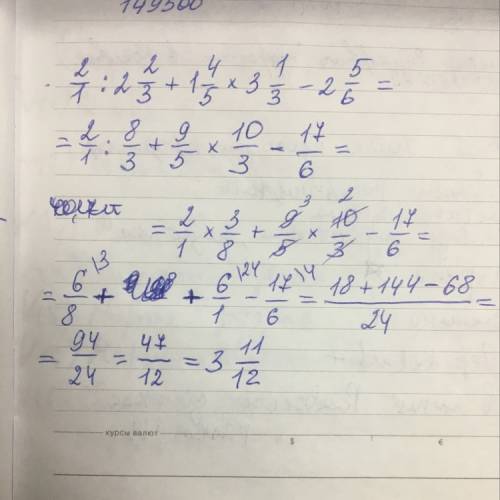 149500
2/1 : 2 2/3 + 1 4/5 × 3 1/3 - 2 5/6 =
= 2/1 : 8/3 + 9/5 × 10/3 - 17/6 =
= 2/1 × 3/8 + 9/5 3 × 10/3 2 - 17/6 =
= 6/8 \3 + + 6/1 \24 - 17/6 \4 = 18 + 144 - 68 / 24 =
= 94/24 = 47/12 = 3 11/12
курсы валют $ €